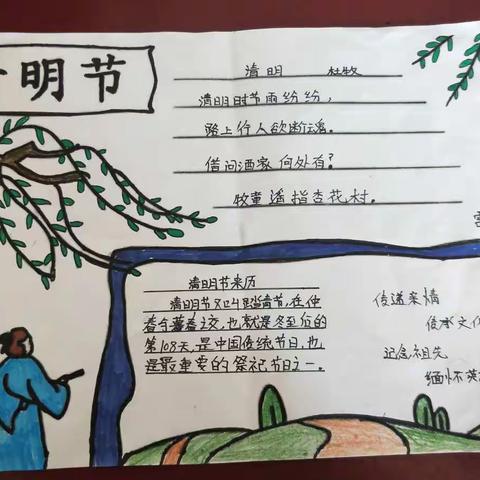 明节
清明 杜牧
清明时节雨纷纷，
路上行人欲断魂。
借问酒家何处有?
牧童遥指杏花村。
清明节来历
清明节又叫踏青节，在仲
春与暮春之交，也就是冬至后的
第108天，是中国传统节日，也
是最重要的祭祀节日之一。
传递亲情
传承文化
纪念祖先
缅怀英